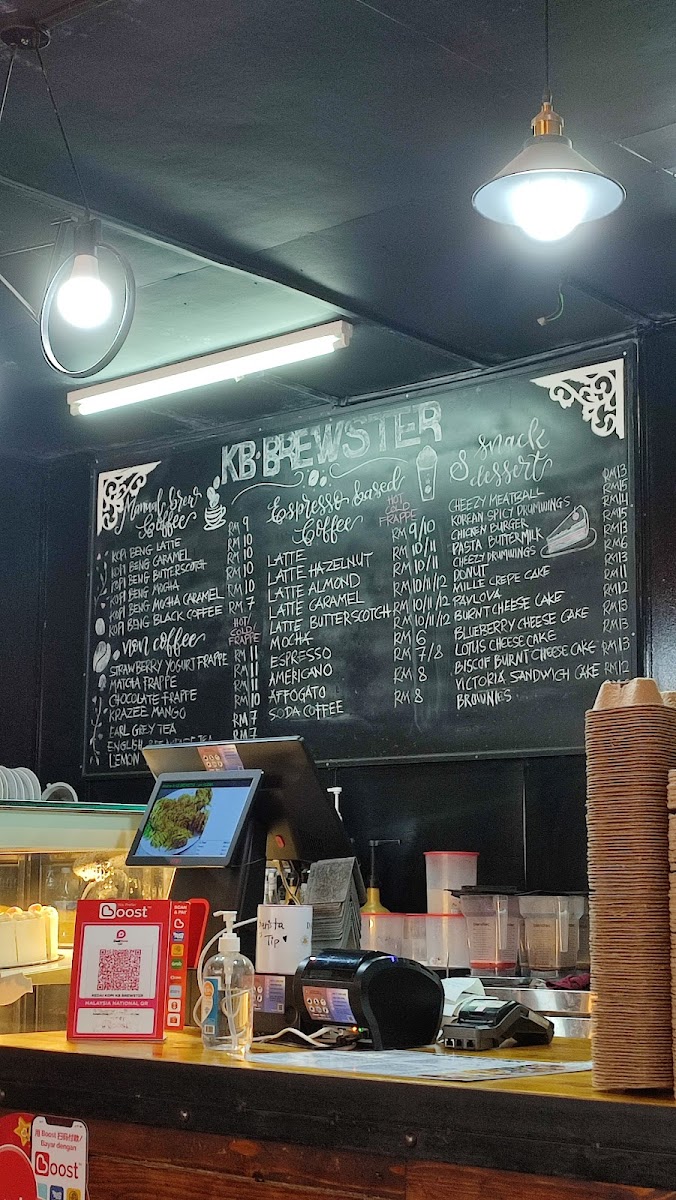 KB·BREWSTER
Manual brew
Coffee
KOPI BENG LATTE RM 9
KOPI BENG CARAMEL RM 10
KOPI BENG BUTTERSCOTCH RM 10
KOPI BENG MOCHA RM 10
KOPI BENG MOCHA CARAMEL RM 10
KOPI BENG BLACK COFFEE RM 7
non coffee
HOT/
COLD/
FRAPPE
STRAWBERRY YOGURT FRAPPE RM 11
MATCHA FRAPPE RM 11
CHOCOLATE FRAPPE RM 11
KRAZEE MANGO RM 10
EARL GREY TEA RM 7
ENGLISH BREAKFAST TEA RM 7
LEMON
Espresso based
Coffee
HOT
COLD
FRAPPE
LATTE RM 9/10
LATTE HAZELNUT RM 10/11
LATTE ALMOND RM 10/11
LATTE CARAMEL RM 10/11/12
LATTE BUTTERSCOTCH RM 10/11/12
MOCHA RM 10/11/12
ESPRESSO RM 6
AMERICANO RM 7/8
AFFOGATO RM 8
SODA COFFEE RM 8
snack
& dessert
CHEEZY MEATBALL RM13
KOREAN SPICY DRUMWINGS RM15
CHICKEN BURGER RM14
PASTA BUTTERMILK RM15
CHEEZY DRUMWINGS RM13
DONUT RM6
MILLE CREPE CAKE RM13
PAVLOVA RM11
BURNT CHEESE CAKE RM12
BLUEBERRY CHEESE CAKE RM13
LOTUS CHEESE CAKE RM13
BISCOF BURNT CHEESE CAKE RM13
VICTORIA SANDWICH CAKE RM12
BROWNIES
Boost
SCAN
& PAY
KEDAI KOPI KB BREWSTER
MALAYSIA NATIONAL QR
Tip
用 Boost 扫描付款/
Bayar dengan
Boost